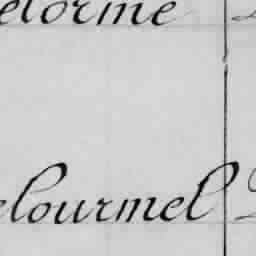 elorme
elourmel